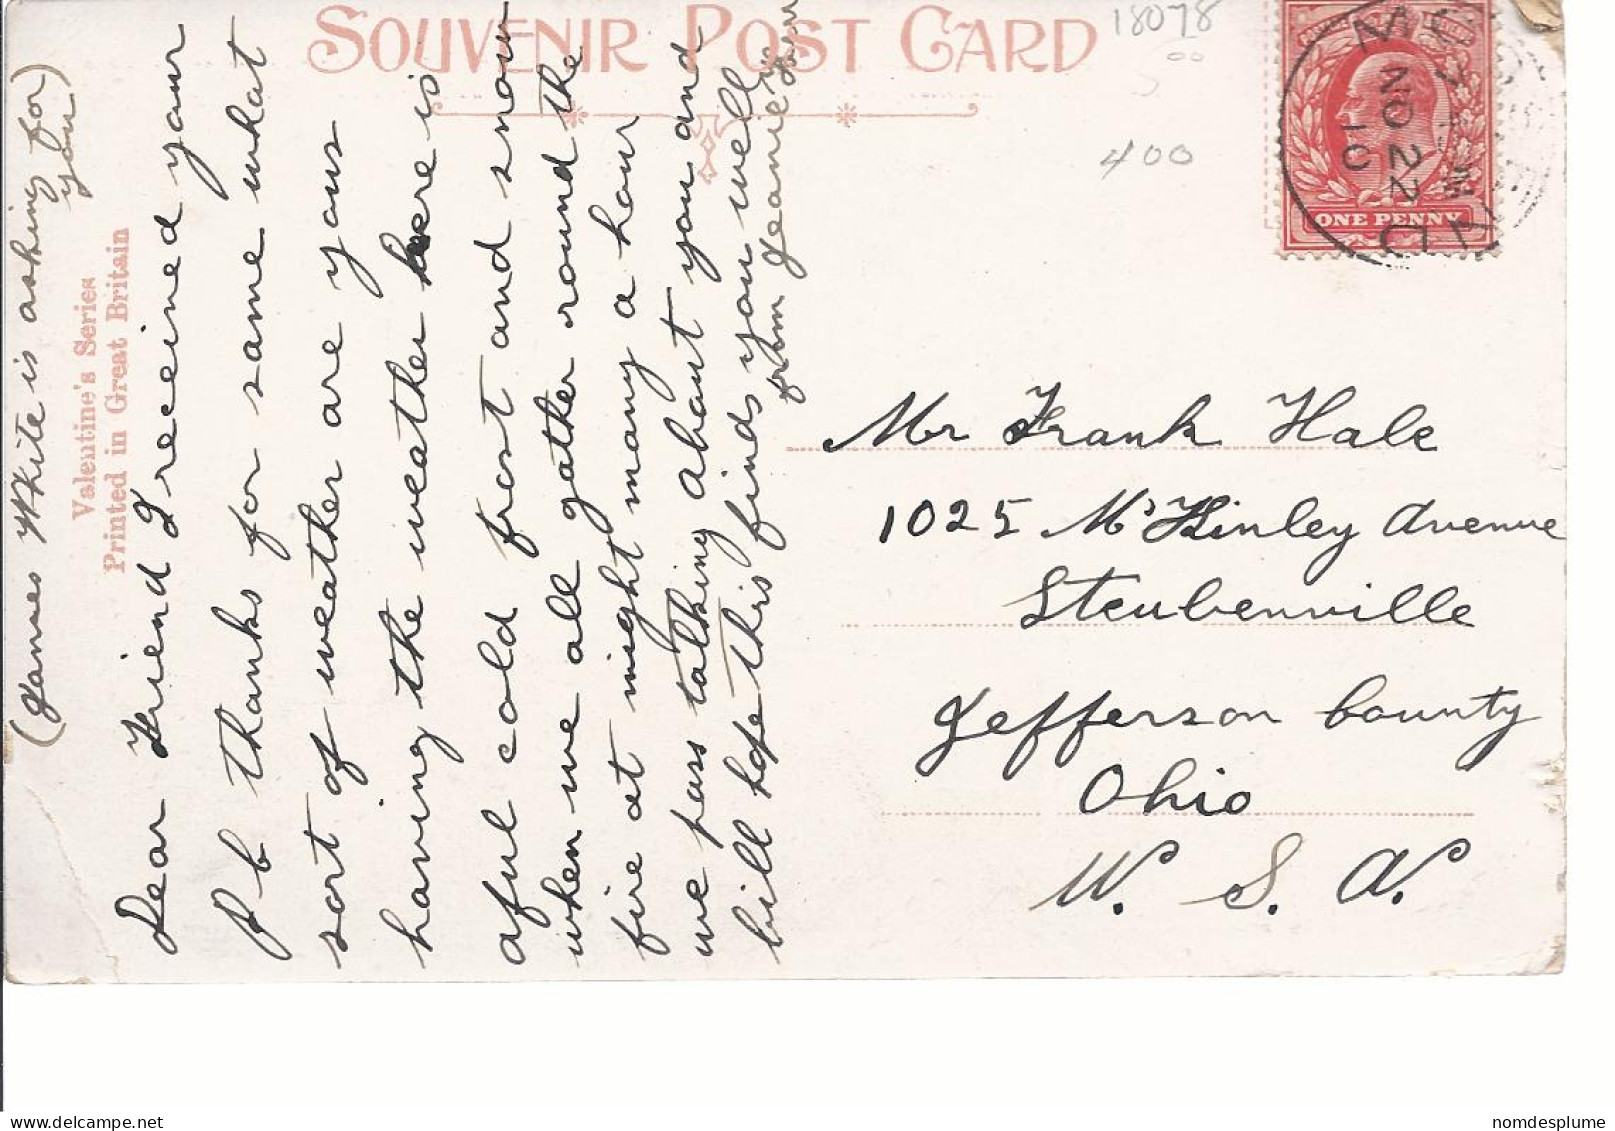 SOUVENIR POST CARD
18078
5 00
400
ONE PENNY
NO 22
10
Valentine's Series
Printed in Great Britain
(James White is asking for
you)
Dear Friend I received your
P b thanks for same what
sort of weather are yous
having the weather here is
aful cold frost and snow
when we all gather round the
fire at night many a hour
we pass talking about you and
bill hope this finds you well
from Jeanie
Mr Frank Hale
1025 McKinley Avenue
Steubenville
Jefferson County
Ohio
U. S. A.
www.delcampe.net
nomdesplume